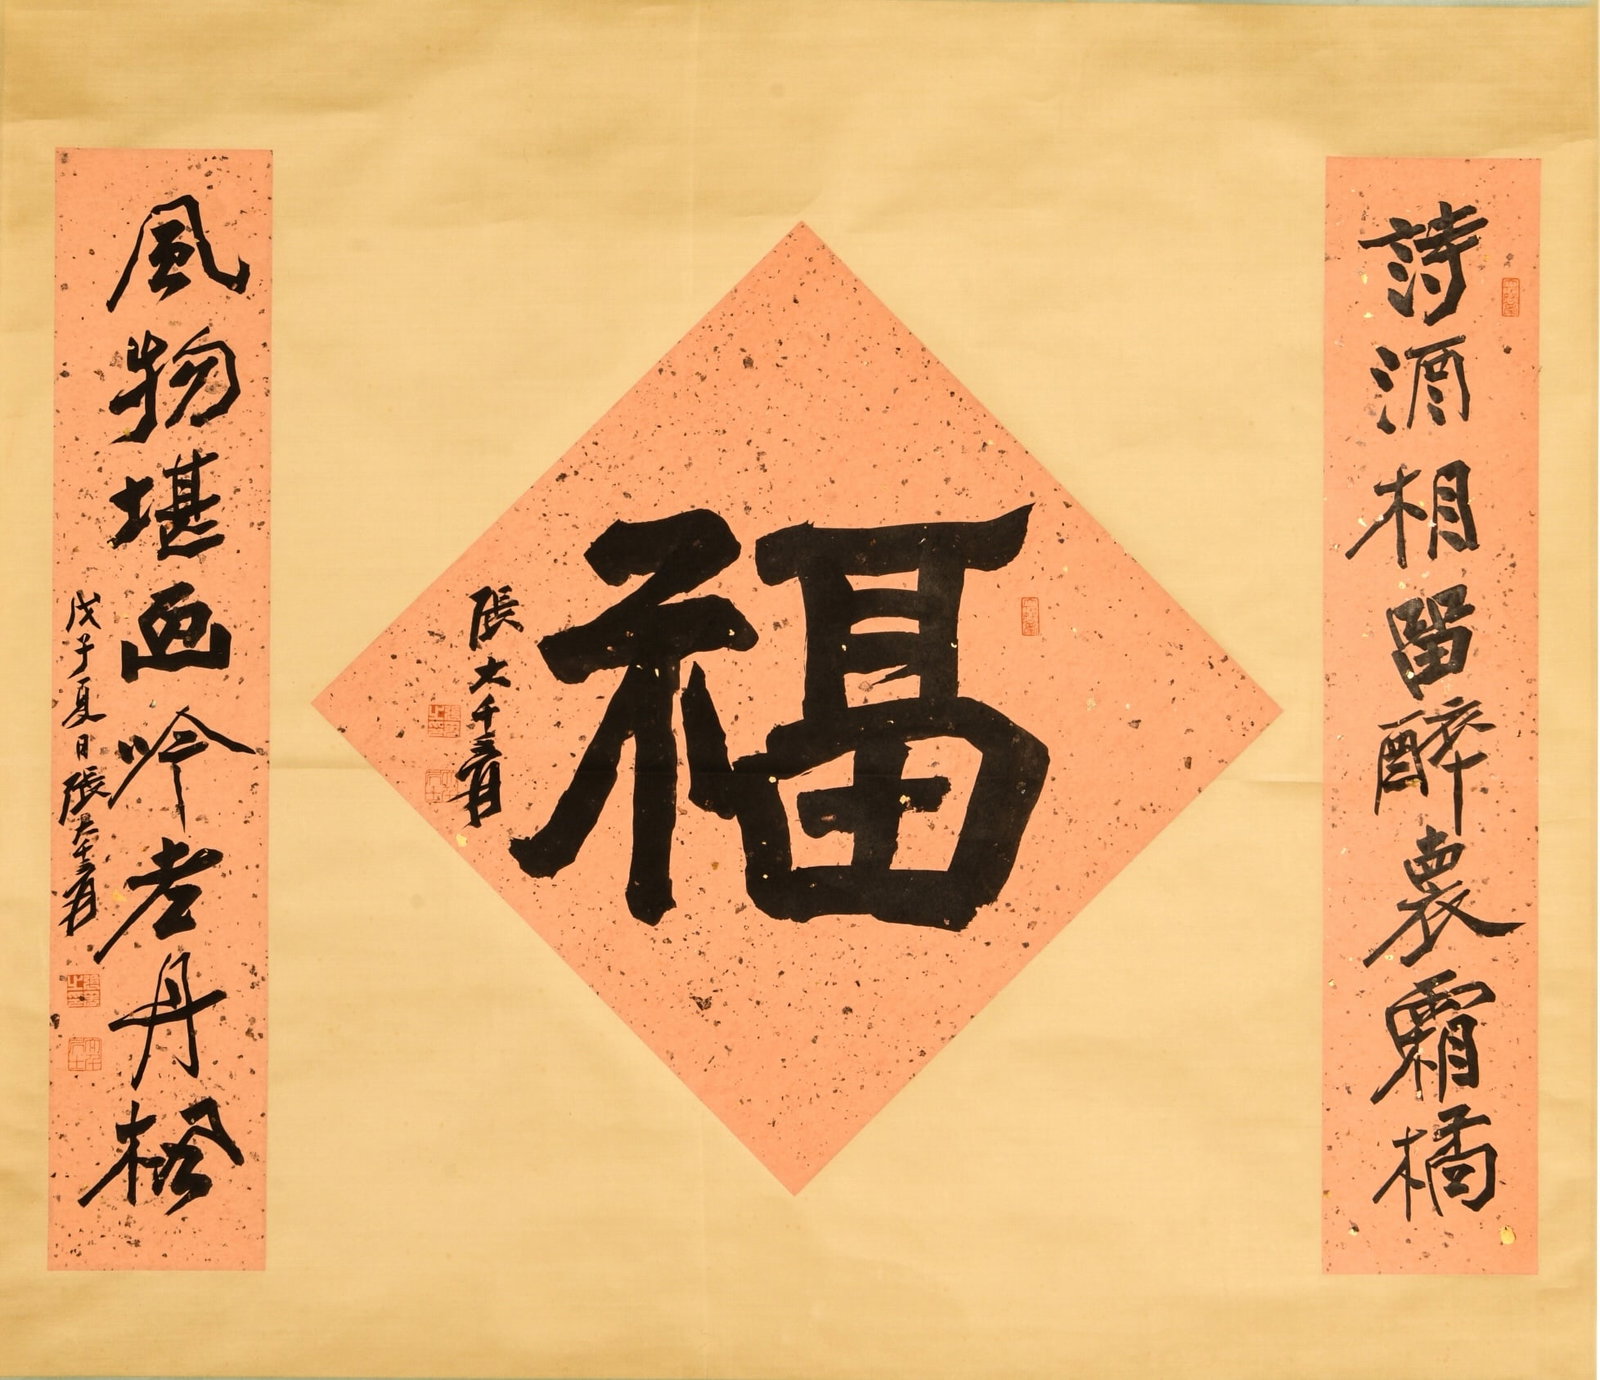 詩酒相留醉裏霜橘
福
張大千爰
風物堪画吟老丹楓
戊子夏日張大千爰